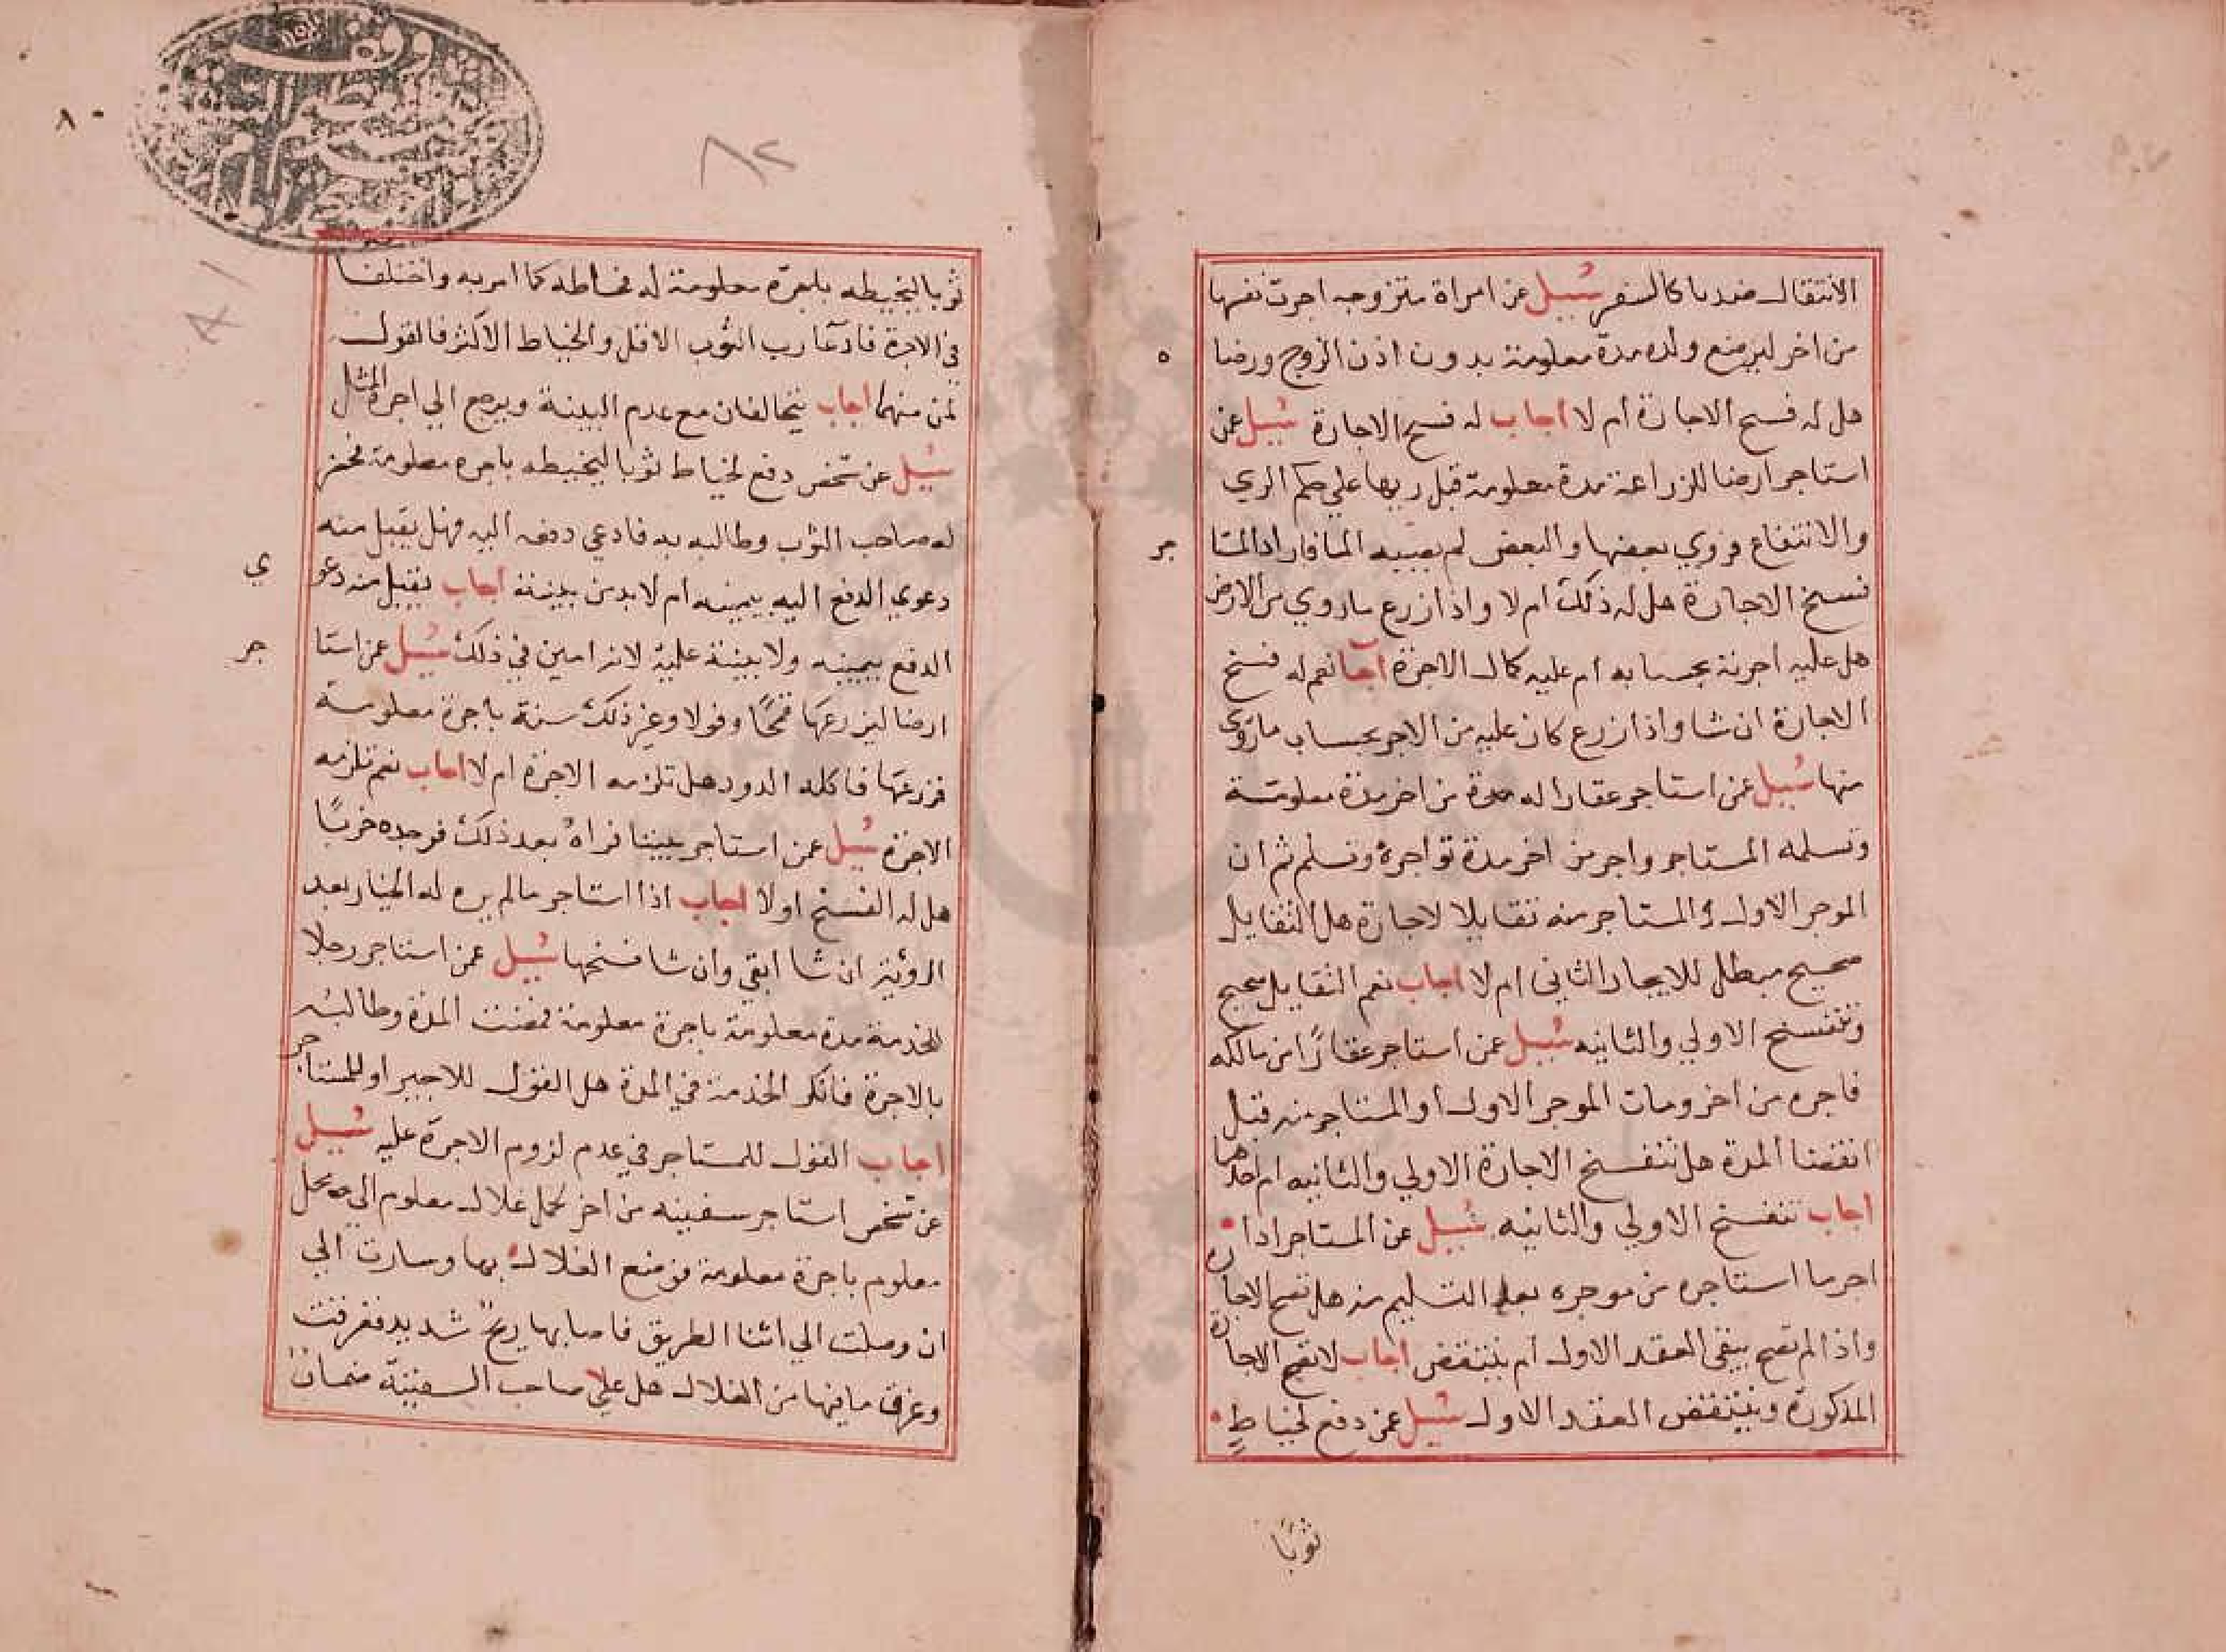 الانتقال ضررا كالسفر سيل عن امراة متزوجه اجرت نفسها
من اخر لترضع ولده مدة معلومة بدون اذن الزوج ورضا ه
هل له فسخ الاجارة أم لا أجاب له فسخ الاجارة سيل عمن
استاجر ارضا للزراعة مدة معلومة قبل ريها علي حكم الري
والانتفاع فروي بعضها والبعض لم يصبه الما فاراد المستا جر
فسخ الاجارة هل له ذلك ام لا واذا زرع ما روي من الارض
هل عليه اجرته بحسابه ام عليه كمال الاجرة أجاب نعم له فسخ
الاجارة ان شا واذا زرع كان عليه من الاجر بحساب ما روي
منها سيل عن استاجر عقارا له مدة من اخر مدة معلومة
وتسلمه المستاجر واجر من اخر مدة تواجره وتسلم ثم ان
الموجر الاول والمستاجر منه تقايلا لاجارة هل التقايل
صحيح مبطل للايجار الثاني ام لا اجاب نعم التقايل صحيح
وتنفسخ الاولي والثانيه سيل عمن استاجر عقارًا من مالكه
فاجره من اخر ومات الموجر الاول او المستاجر منه قبل
انقضا المدة هل تنفسخ الاجارة الاولي والثانيه ام احدهما
اجاب تنفسخ الاولي والثانيه سيل عن المستاجر اذا
اجر ما استاجره من موجره بعد التسليم منه هل تصح الاجارة
واذا لم تصح يبقى العقد الاول أم ينتقض اجاب لا تصح الاجارة
المذكورة وينتقض العقد الاول سيل عمن دفع لخياطٍ
ثوبًا
٨٠
٨٢
٨١
وقف
ثوبا ليخيطه باجرة معلومة له فخاطه كما امر به واختلفا
في الاجرة فادعا رب الثوب الاقل والخياط الاكثر فالقول
لمن منهما اجاب يتحالفان مع عدم البينة ويرجع الي اجرة المثل
سيل عن شخص دفع لخياط ثوبا ليخيطه باجره معلومة فحضر
له صاحب الثوب وطالبه به فادعي دفعه اليه فهل يقبل منه
دعوي الدفع اليه بيمينه ام لا بد من بينة أجاب يقبل منه دعو ي
الدفع بيمينه ولا بينة عليه لانه امين في ذلك سيل عن استا جر
ارضا ليزرعها قمحًا وفولا وغير ذلك سنة باجرة معلومة
فزرعها فاكله الدود هل تلزمه الاجرة ام لا اجاب نعم تلزمه
الاجرة سيل عمن استاجر بيتا فراه بعد ذلك فوجده خربًا
هل له الفسخ او لا اجاب اذا استاجر ما لم يره له الخيار بعد
الرؤية ان شا ابقي وان شا فسخها سيل عمن استاجر رجلا
للخدمة مدة معلومة باجرة معلومة فمضت المدة وطالبه
بالاجرة فانكر الخدمة في المدة هل القول للاجير او للمستاجر
اجاب القول للمستاجر في عدم لزوم الاجرة عليه سيل
عن شخص استاجر سفينه من اخر لحمل غلال معلوم الي محل
معلوم باجرة معلومة فوضع الغلال بها وسارت الي
ان وصلت الي اثنا الطريق فاصابها ريح شديد فغرقت
وغرق ما فيها من الغلال هل علي صاحب السفينة ضمان